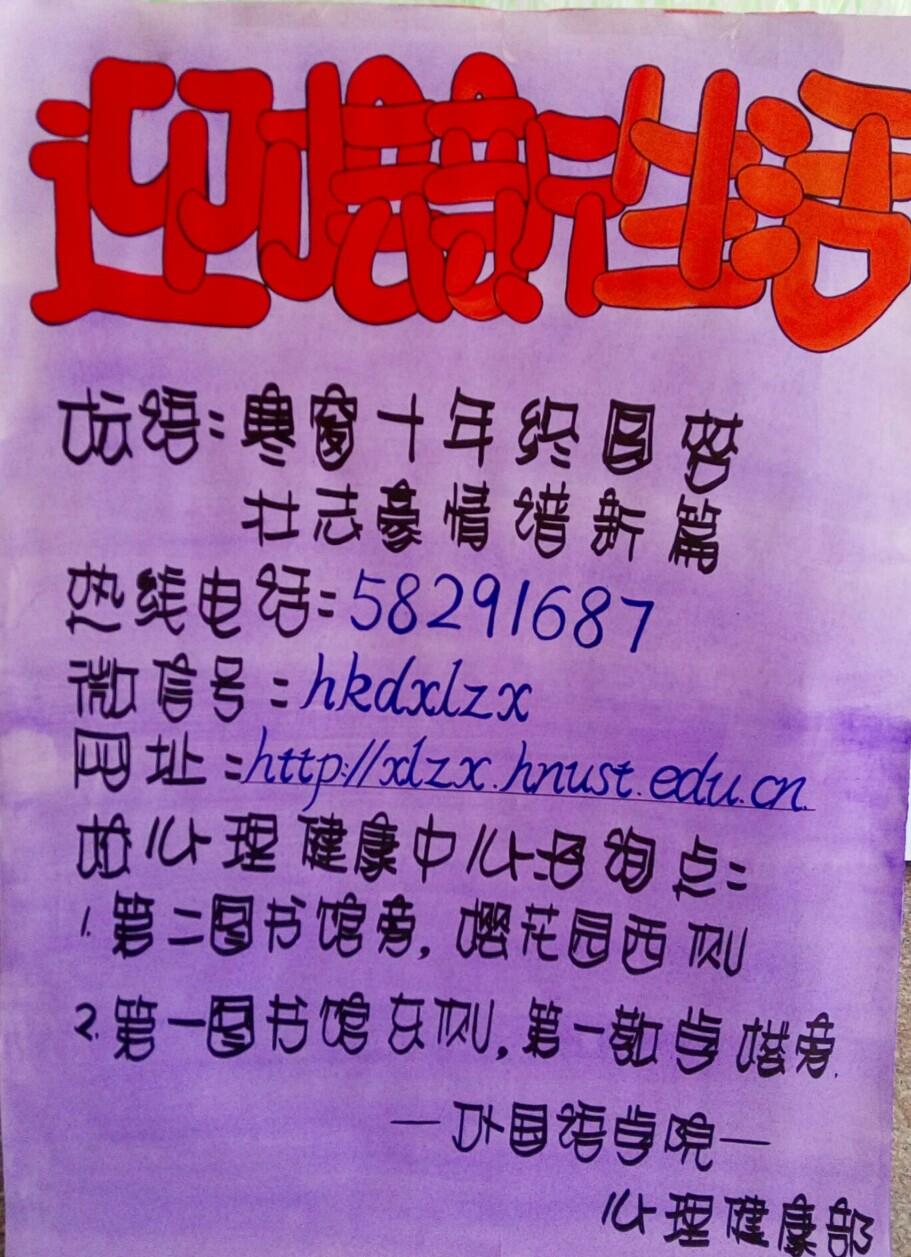 迎接新生活
标语:寒窗十年终圆梦
壮志豪情谱新篇
热线电话:58291687
微信号:hkdxlzx
网址:http://xlzx.hnust.edu.cn.
心理健康中心咨询点:
1.第二图书馆旁,樱花园西侧
2.第一图书馆东侧,第一教学楼旁.
—外国语学院—
心理健康部